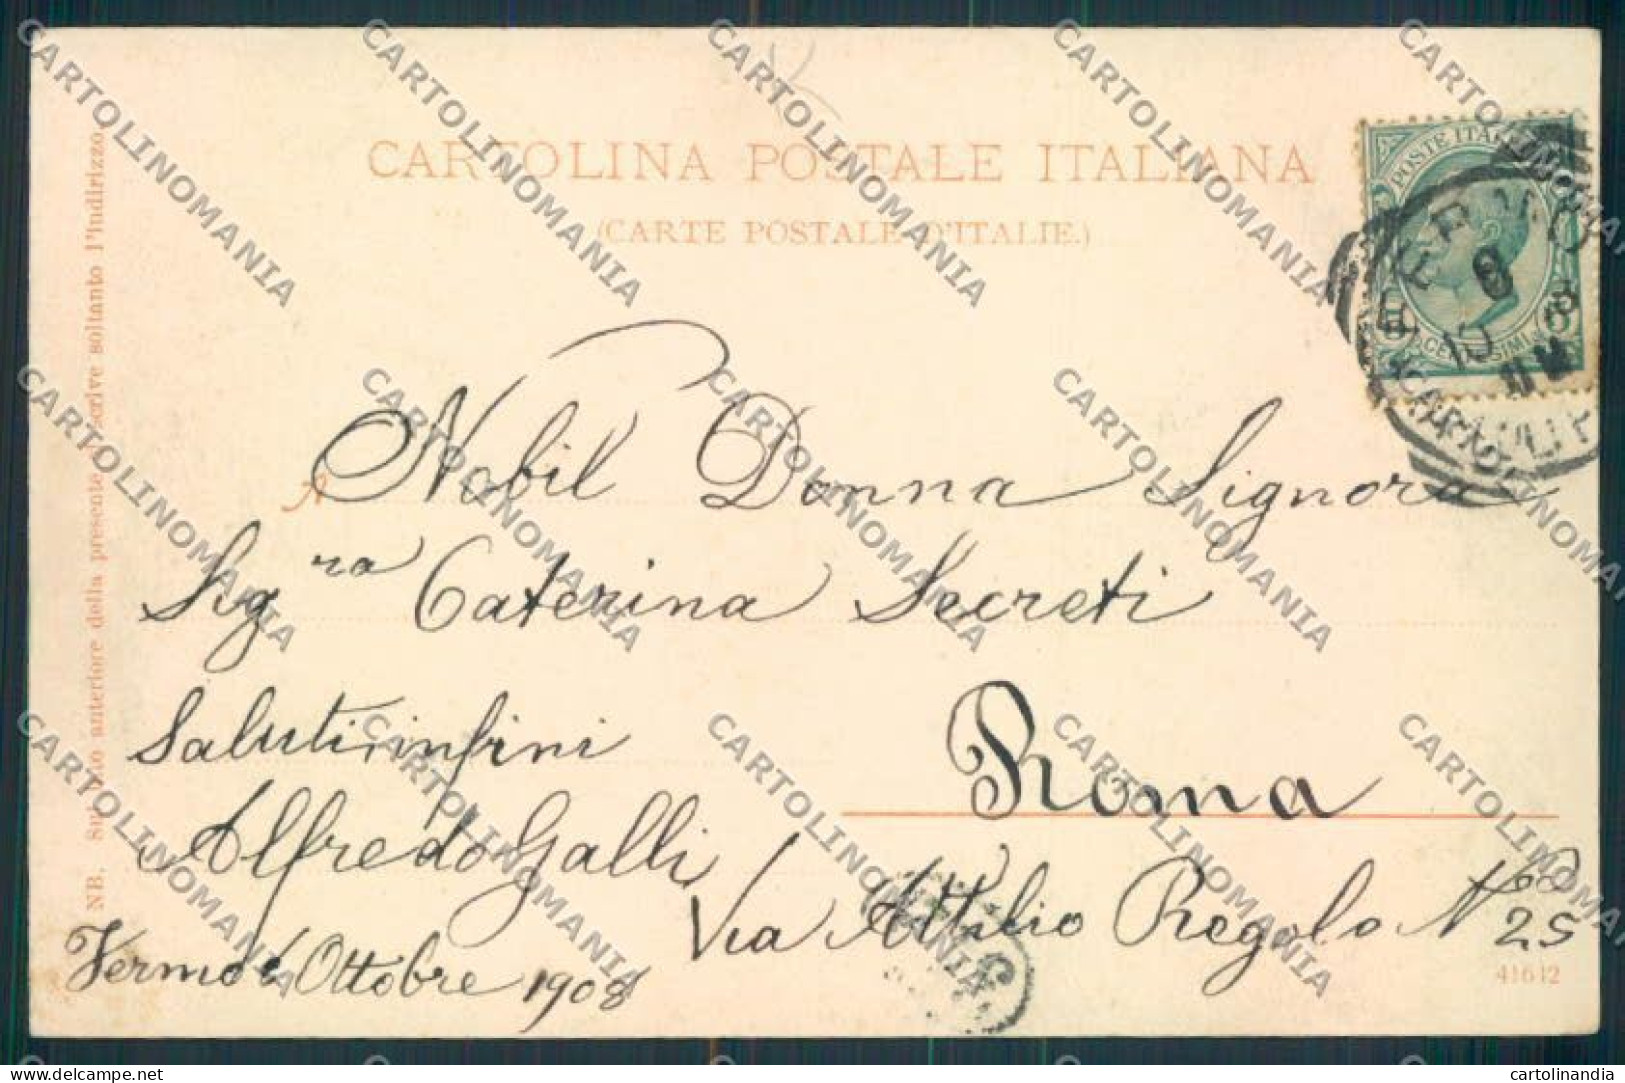 CARTOLINA POSTALE ITALIANA
(CARTE POSTALE D'ITALIE.)
POSTE ITALIANE
FERMO
8
10 08
A Nobil Donna Signora
Sigra Caterina Secreti
Saluti infini
Roma
Alfredo Galli
Via Attilio Regolo No
25
Fermo 6 Ottobre 1908
41642
NB. Sul lato anteriore della presente si scrive soltanto l'indirizzo.
CARTOLINOMANIA
cartolinandia
delcampe.net